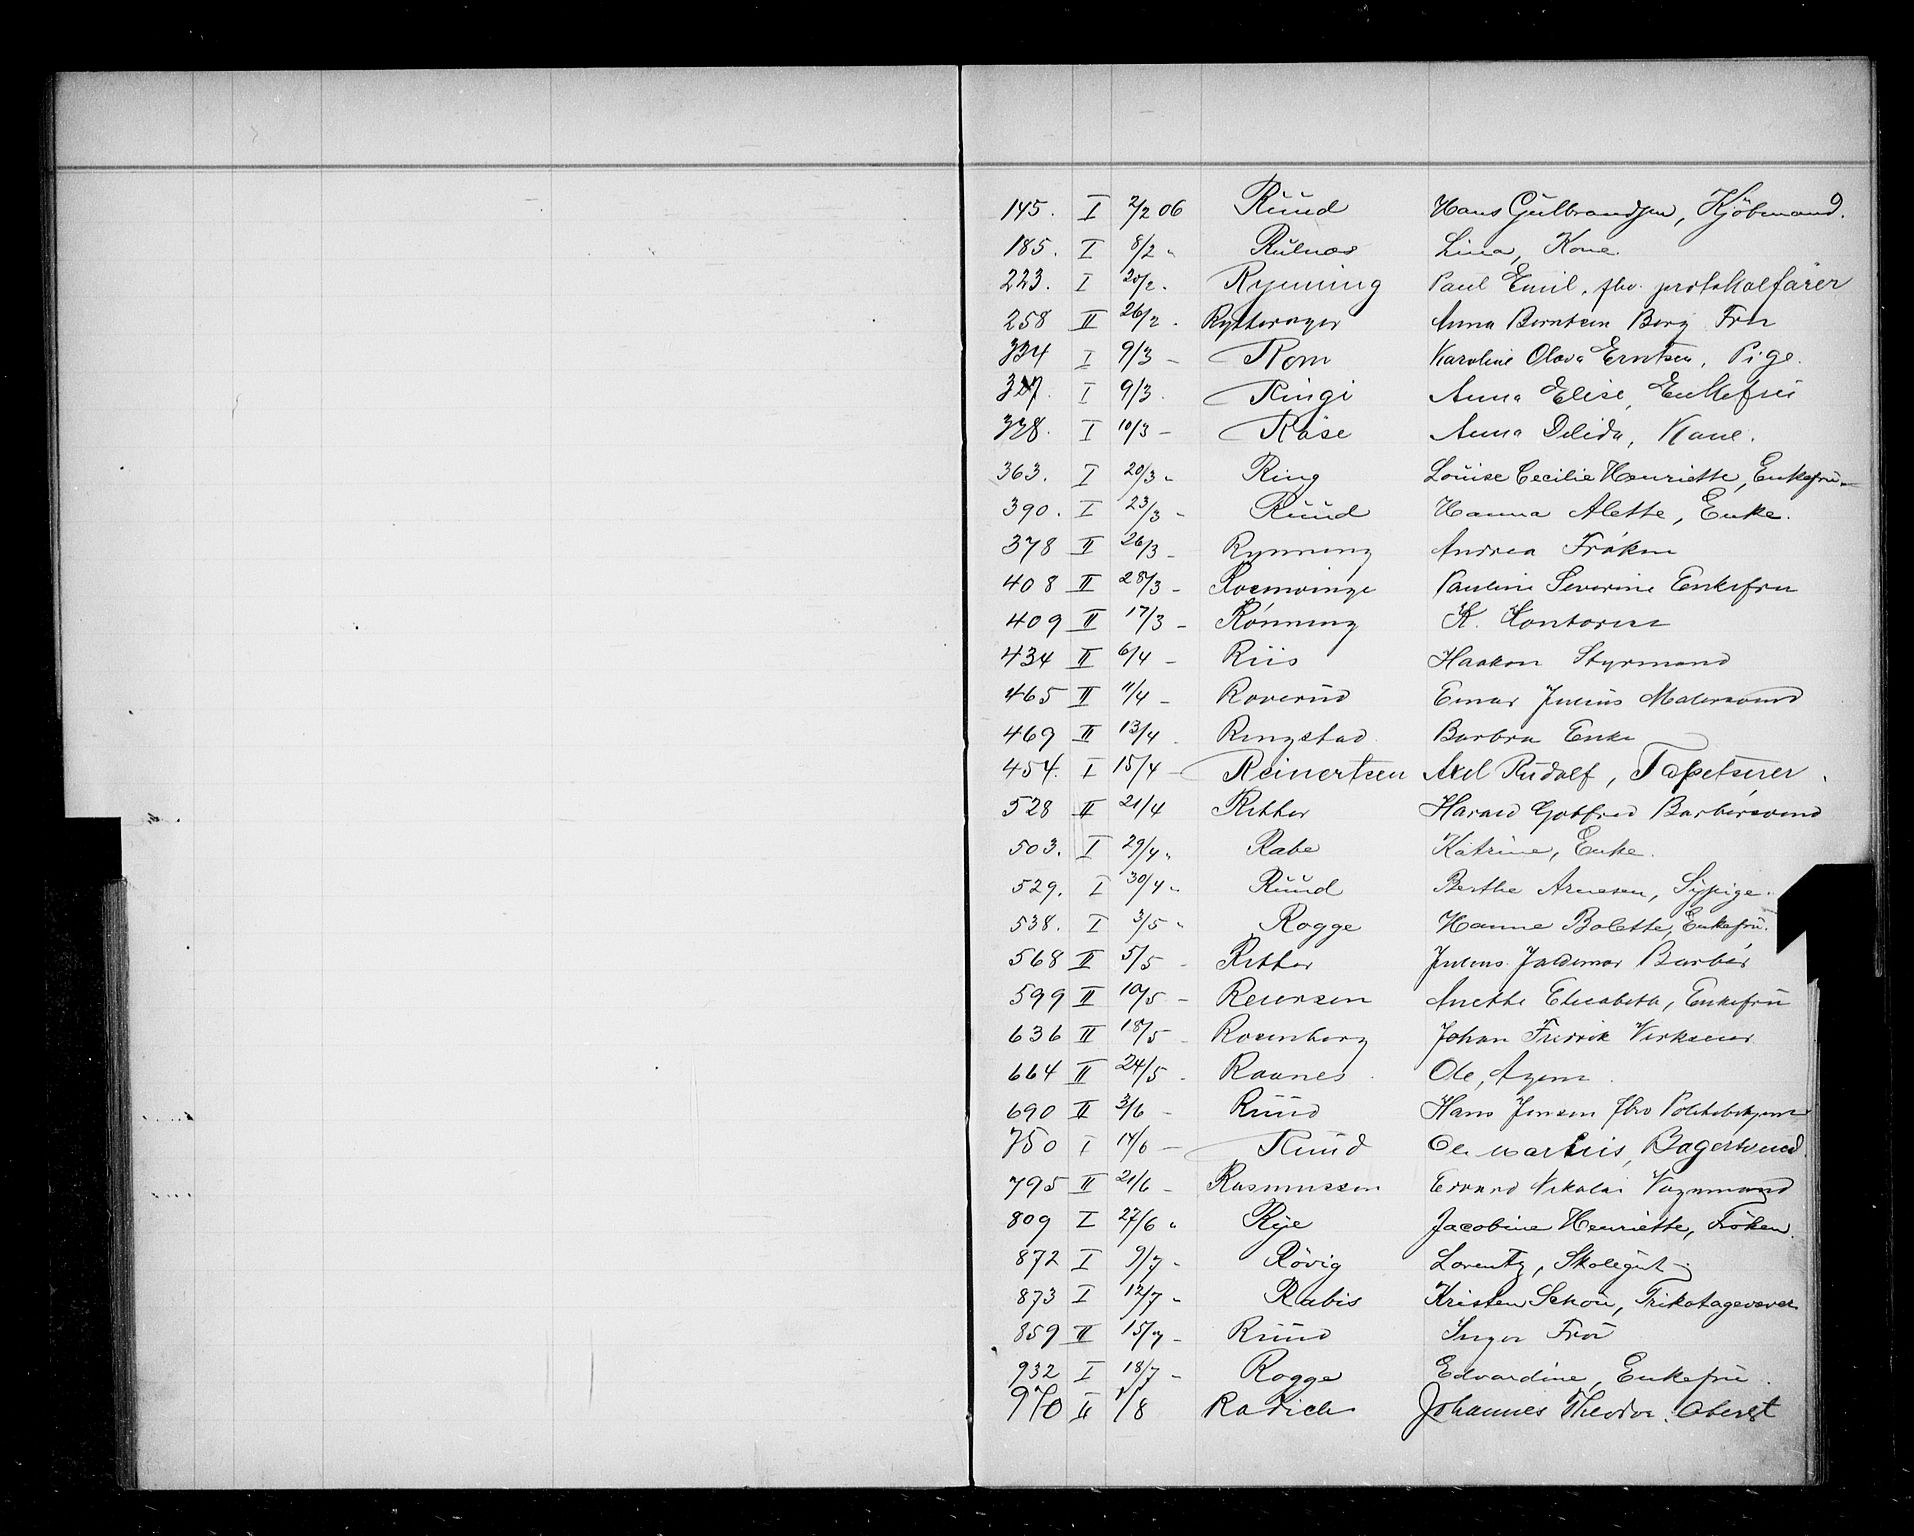 145. I 2/2 06 Ruud Hans Gulbrandsen, Kjöbmand.
185. I 8/2 " Lina, Kone.
223. I 20/2 - Rynning Paul Emil, fhv. protokolfører
258 II 26/2 - Rytterager Anna Berntsen Berg Fru
334 I 9/3 - Rom Karoline Olava Erntsen, Pige.
I 9/3. Ringi Anna Elise, Enkefru
338. I 10/3 - Råse Anna Kone.
363. I 20/3 " Ring Louise Cecilie Henriette, Enkefru.
390. I 23/3 " Ruud Hanna Alette, Enke.
378 II 26/3 - Rynning Andrea Frøken
408 II 28/3 - Rosenvinge Pauline Severine Enkefru
409 II 17/3 - Rønning K. Kontorist
434 II 6/4 - Riis Haakon Styrmand
465 II 11/4 - Roverud Einar Julius Malersvend
469 II 13/4 - Ringstad Barbra Enke
454. I 15/4 - Reinertsen Axel Rudolf, Tapetserer.
528 II 21/4 Ritter Harald Gotfred Barbersvend
503. I 29/4 " Rabe Katrine, Enke.
529. I 30/4 " Ruud Berthe Arnesen, Sypige.
538. I 3/5 " Rogge Hanne Bolette, Enkefru.
568 II 5/5 - Ritter Julius Valdemar Barbér
599 II 10/5 - Reiersen Anette Elisabeth, Enkefru
636 II 18/5 - Rosenberg Johan Fredrik Verkseier
664 II 24/5 - Raanes Ole, Agent
690 II 3/6 - Ruud Hans Jensen fhv Politibetjent
750 I 14/6 - Ruud Ole Martius, Bagersvend
795 II 21/6 - Rasmussen Edvard Nikolai Vognmand
809 I 27/6 " Rye Jacobine Henriette, Frøken.
872 I 9/7 " Røvig Lorentz, Skolegut
873 I 12/7 " Rabis Kristen Schou, Trikotagevæver
859 II 15/7 - Ruud Inga Fru
932 I 18/7 " Rogge Edvardine, Enkefru.
970 II 1/8 Radich Johannes Theodor. Oberst